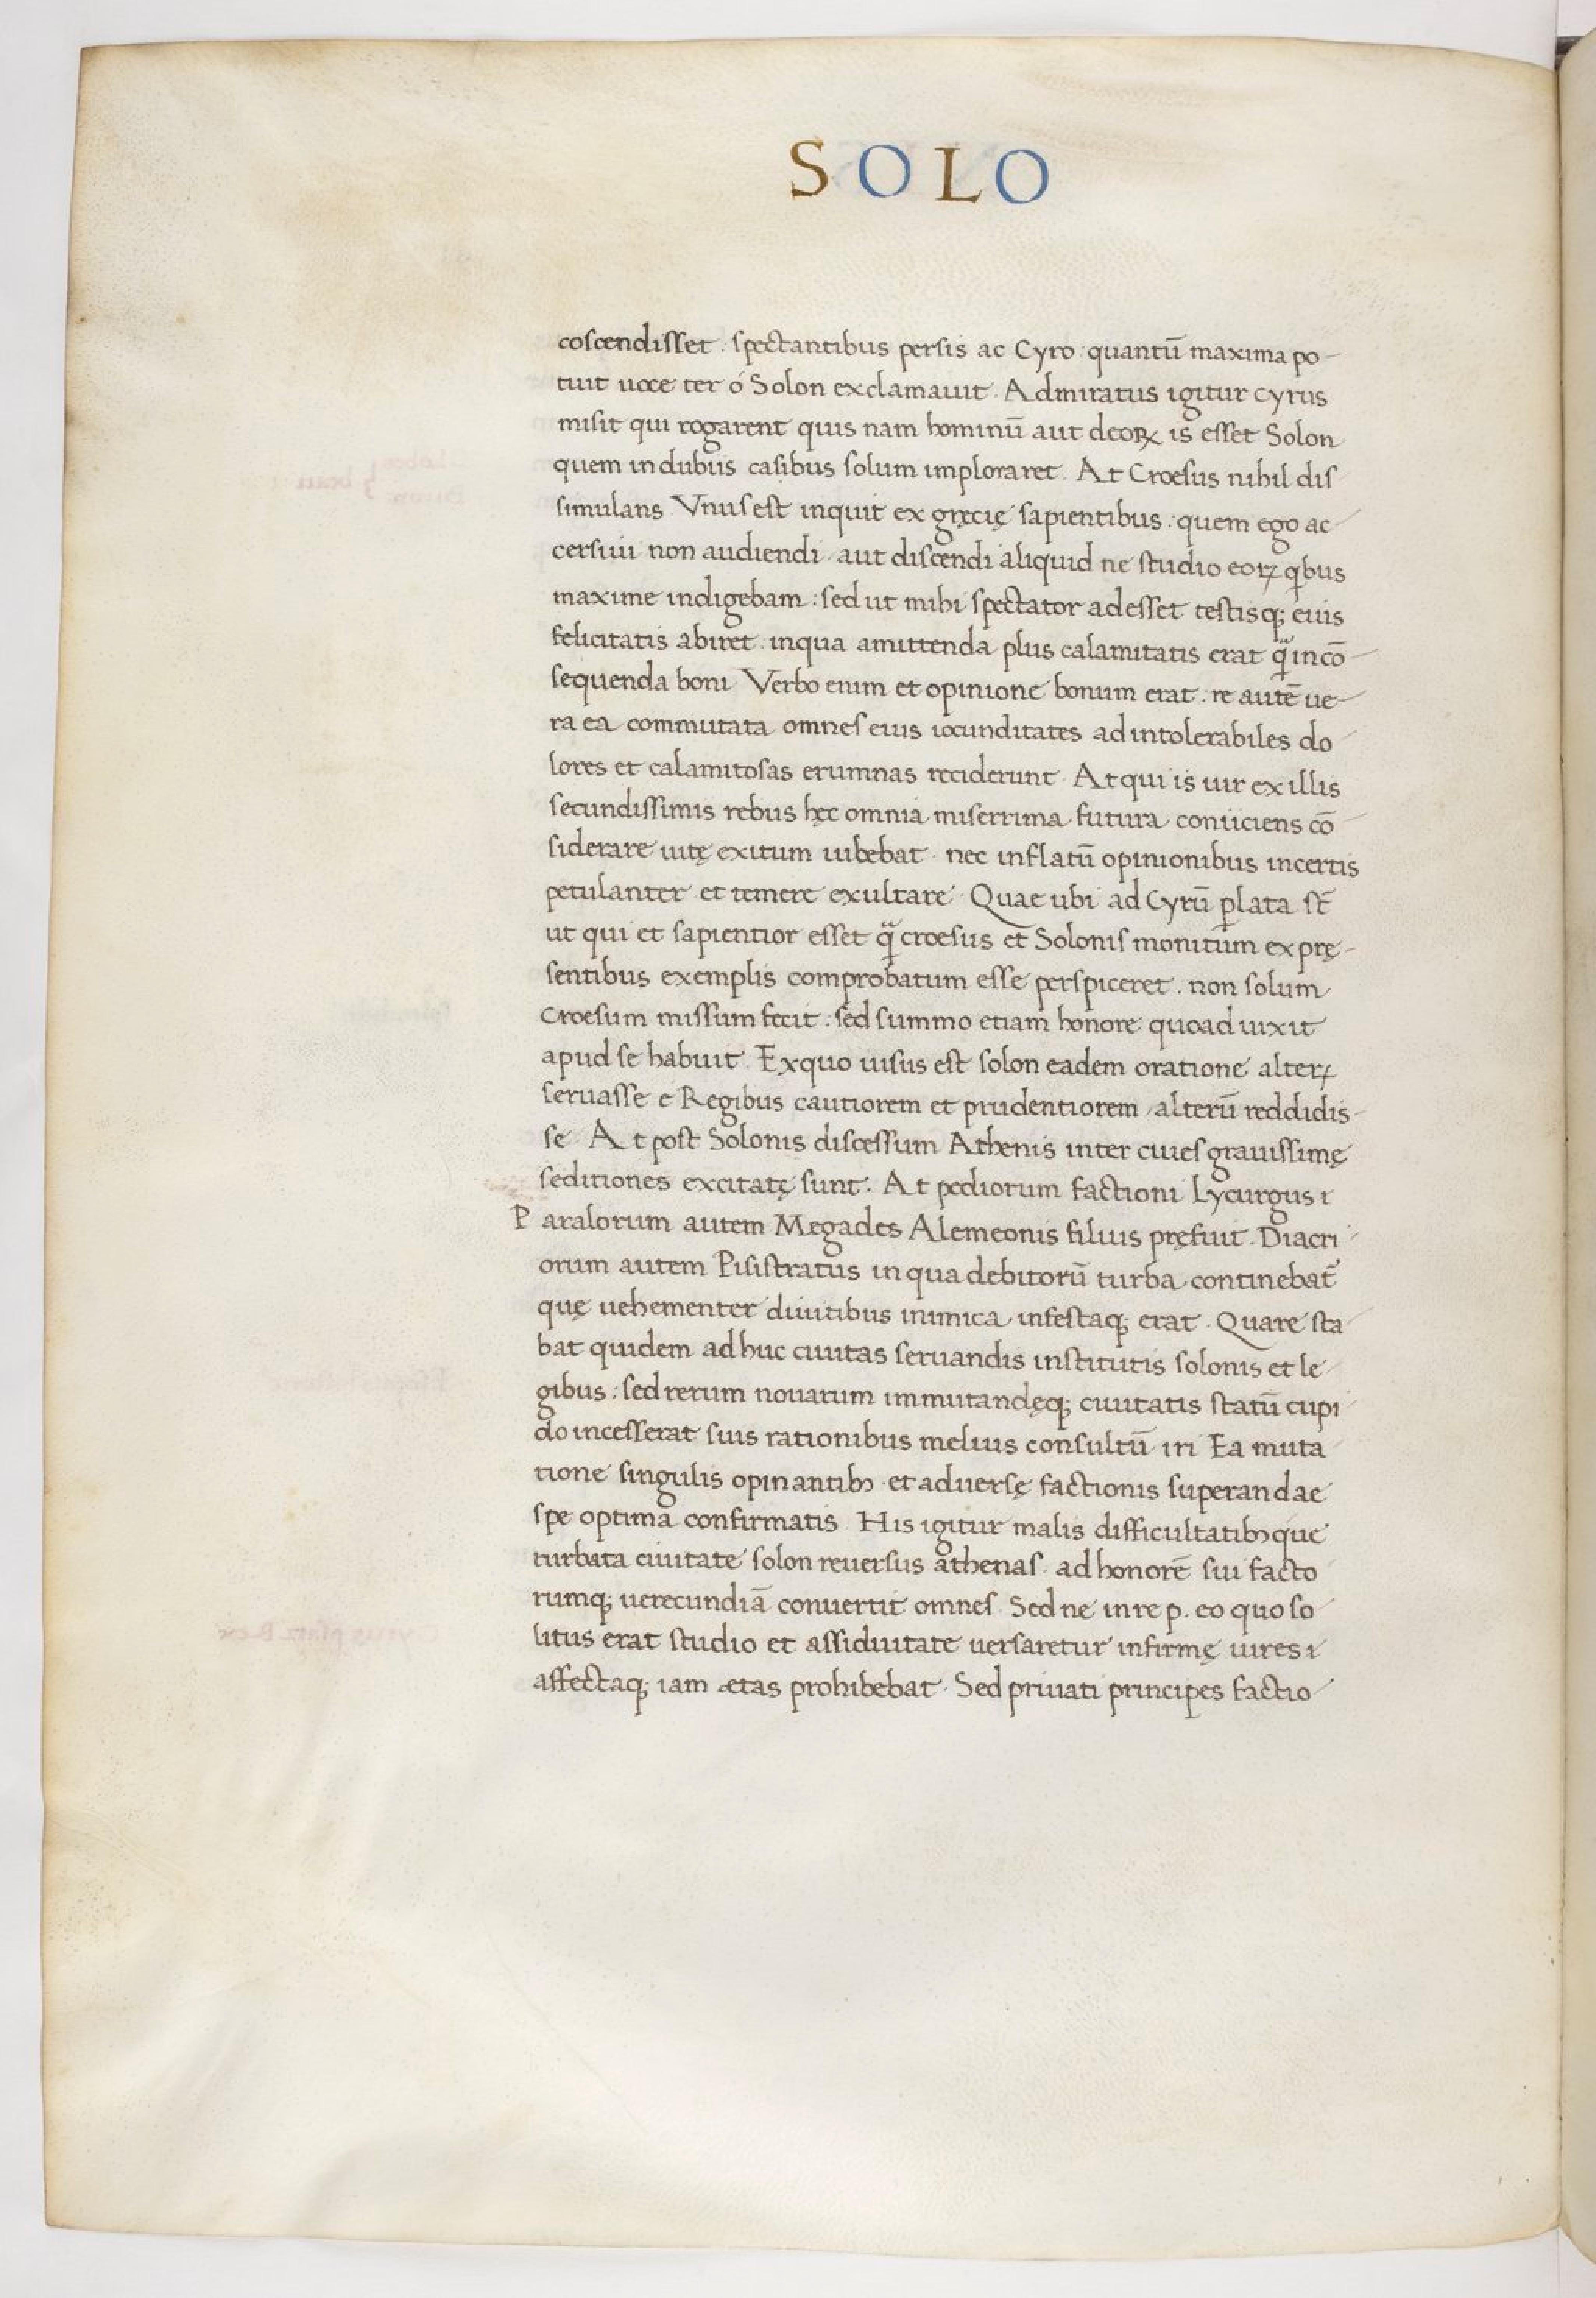 SOLO
coscendisset. spectantibus persis ac Cyro: quantū maxima po-
tuit uoce ter ó Solon exclamauit. Admiratus igitur cyrus
misit qui rogarent quis nam hominū aut deoꝝ is esset Solon
quem in dubiis casibus solum imploraret. At Croesus nihil dis
simulans Vnus est inquit ex gręcię sapientibus: quem ego ac-
cersiui non audiendi aut discendi aliquid ne studio eoꝝ ꝗbus
maxime indigebam: sed ut mihi spectator adesset testisq; eius
felicitatis abiret. inqua amittenda plus calamitatis erat ꝙ̃ incō-
sequenda boni Verbo enim et opinione bonum erat: re autē ue-
ra ea commutata omnes eius iocunditates ad intolerabiles do-
lores et calamitosas erumnas reciderunt. Atqui is uir ex illis
secundissimis rebus hęc omnia miserrima futura coniiciens cō-
siderare uitę exitum iubebat. nec inflatū opinionibus incertis
petulanter et temere exultare. Quae ubi ad Cyrū ꝑlata st̄
ut qui et sapientior esset ꝙ̃ croesus et Solonis monitum ex prę-
sentibus exemplis comprobatum esse perspiceret. non solum
Croesum missum fecit: sed summo etiam honore quoad uixit
apud se habuit. Exquo uisus est solon eadem oratione alteꝝ
seruasse e Regibus cautiorem et prudentiorem alterū reddidis-
se At post Solonis discessum Athenis inter ciues grauissimę
seditiones excitatę sunt. At pediorum factioni Lycurgus ı
Paralorum autem Megades Alemeonis filius pręfuit. Diacri-
orum autem Pisistratus in qua debitorū turba continebat̄
quę uehementer diuitibus inimica infestaq; erat. Quare sta-
bat quidem adhuc ciuitas seruandis institutis solonis et le-
gibus: sed rerum nouarum immutandęq; ciuitatis statū cupi-
do incesserat suis rationibus melius consultū iri Ea muta-
tione singulis opinantibꝫ et aduersę factionis superandae
spe optima confirmatis His igitur malis difficultatibꝫque
turbata ciuitate solon reuersus athenas. ad honorē sui facto-
rumq; uerecundiā conuertit omnes. Sed ne inre p. eo quo so-
litus erat studio et assiduitate uersaretur infirmę uires ı
affectaq; iam ætas prohibebat. Sed priuati principes factio-